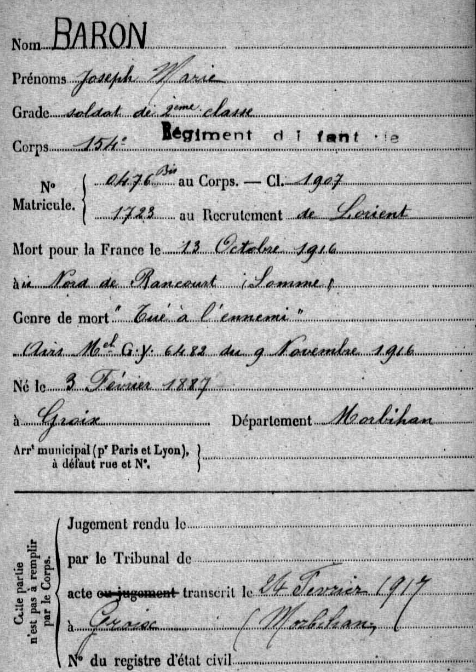 Nom BARON
Prénoms Joseph Marie
Grade soldat de 2ème classe
Corps 154e Régiment d'Infanterie
N° Matricule. { 0476 Bis au Corps. — Cl. 1907
1723 au Recrutement de Lorient
Mort pour la France le 13 Octobre 1916
à au Nord de Rancourt (Somme)
Genre de mort "Tué à l'ennemi"
Avis Mel G.Y. 6482 du 9 Novembre 1916
Né le 3 Février 1887
à Groix Département Morbihan
Arrt municipal (pr Paris et Lyon), à défaut rue et N°. }
Cette partie n'est pas à remplir par le Corps.
Jugement rendu le
par le Tribunal de
acte ou jugement transcrit le 24 Fevrier 1917
à Groix (Morbihan)
N° du registre d'état civil